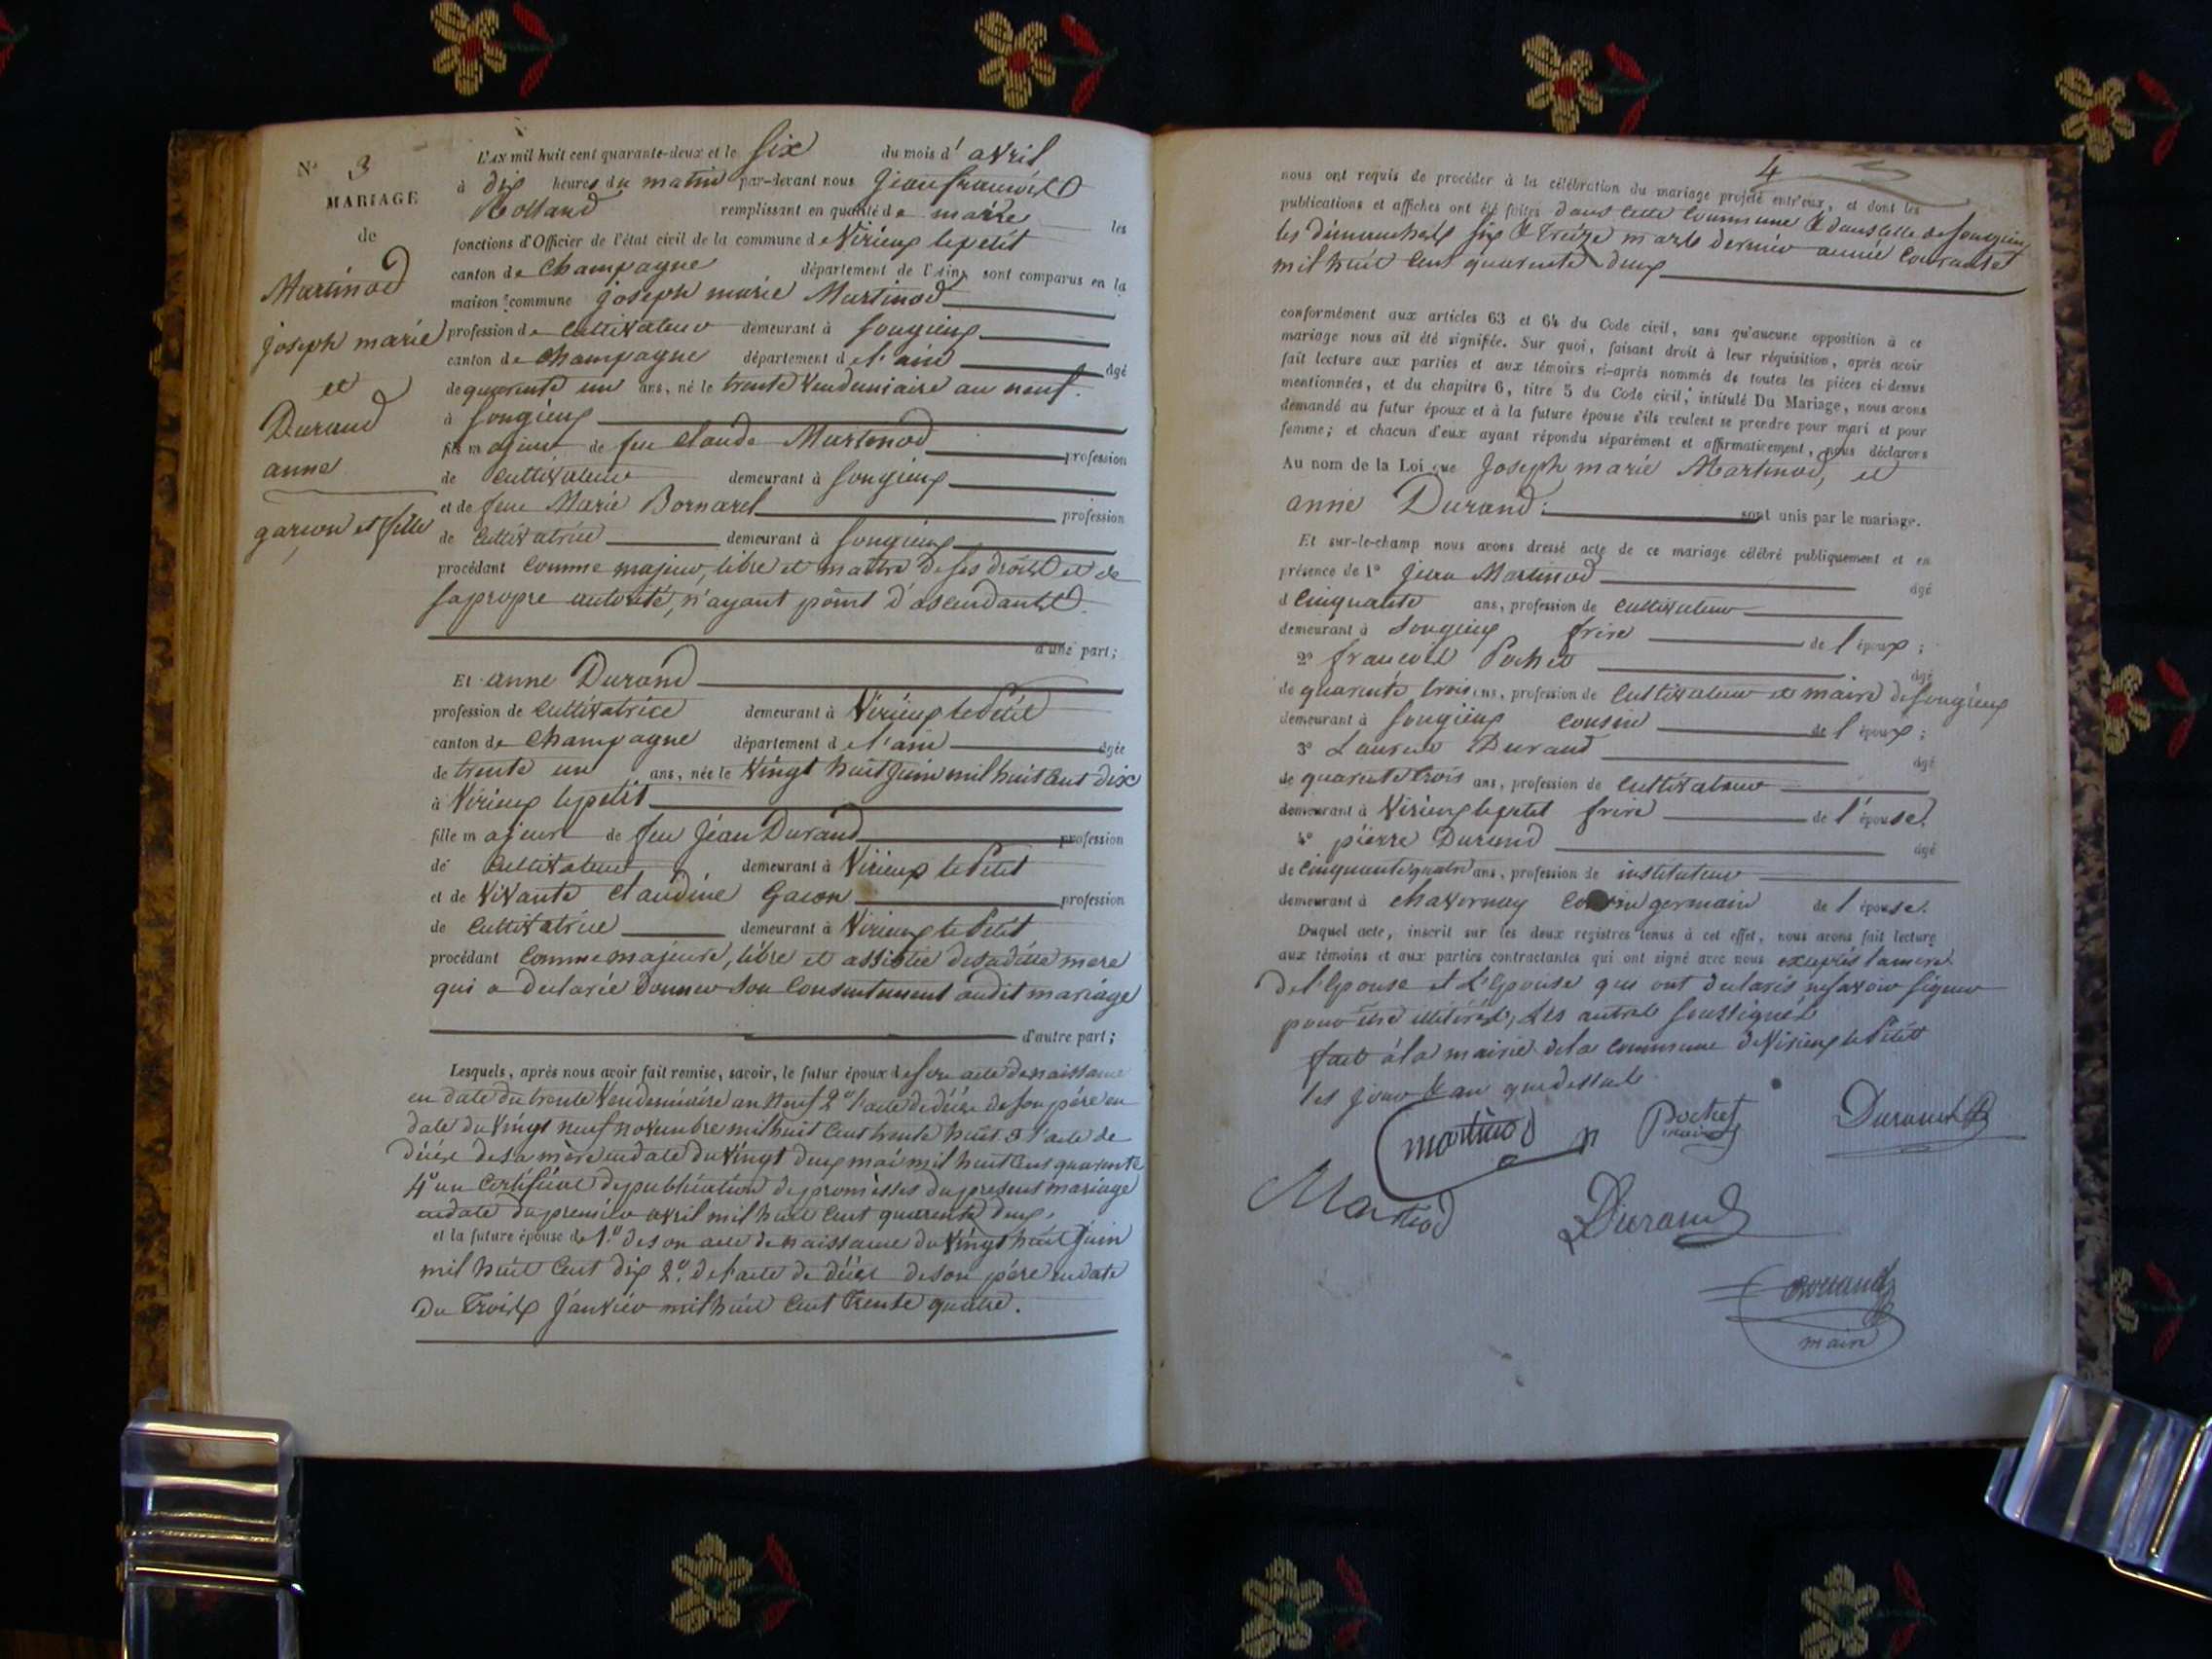 N° 3
MARIAGE
de
Martinod
joseph marie
et
Durand
anne
garçon et fille
L'AN mil huit cent quarante-deux et le six du mois d'avril
à dix heures du matin par-devant nous jean françois
Rolland remplissant en qualité de maire les
fonctions d'Officier de l'état civil de la commune de Virieux le petit
canton de Champagne département de l'Ain, sont comparus en la
maison commune joseph marie Martinod
profession de Cultivateur demeurant à Songieux
canton de Champagne département de l'ain âgé
de quarente un ans, né le trente Vendemiaire an neuf.
à Songieux
fils majeur de feu Claude Martinod profession
de Cultivateur demeurant à Songieux
et de feue Marie Bornarel profession
de Cultivatrice demeurant à Songieux
procédant Comme majeur, libre et maitre de ses droits et de
sa propre autorité, n'ayant point d'ascendants.
d'une part;
Et anne Durand
profession de Cultivatrice demeurant à Virieux le Petit
canton de Champagne département de l'ain âgée
de trente un ans, née le Vingt huit juin mil huit Cent dix
à Virieux le petit
fille majeure de feu jéan Durand profession
de Cultivateur demeurant à Virieux le Petit
et de Vivante Claudine Gacon profession
de Cultivatrice demeurant à Virieux le Petit
procédant Comme majeure, libre et assistée de sa dite mere
qui a declarée donner son Consentement audit mariage
d'autre part;
Lesquels, après nous avoir fait remise, savoir, le futur époux de son acte de naissance
en date du trente Vendemiaire an Neuf 2° l'acte de décès de son père en
date du Vingt neuf novembre mil huit Cent trente huit 3° l'acte de
décés de sa mère en date du Vingt deux mai mil huit Cent quarente
4° un Certificat de publication de promesses du present mariage
en date du premier avril mil huit Cent quarente deux,
et la future épouse de 1.° de son acte de naissance du Vingt huit juin
mil huit Cent dix 2.° de l'acte de décès de son père en date
du Trois janvier mil huit Cent Trente quatre.
4
nous ont requis de procéder à la célébration du mariage projeté entr'eux, et dont les
publications et affiches ont été faites dans Cette Commune & dans Celle de Songieux
les dimanches six & Treize mars dernier année Courante
mil huit Cent quarente deux
conformément aux articles 63 et 64 du Code civil, sans qu'aucune opposition à ce
mariage nous ait été signifiée. Sur quoi, faisant droit à leur réquisition, après avoir
fait lecture aux parties et aux témoins ci-après nommés de toutes les pièces ci-dessus
mentionnées, et du chapitre 6, titre 5 du Code civil, intitulé Du Mariage, nous avons
demandé au futur époux et à la future épouse s'ils veulent se prendre pour mari et pour
femme; et chacun d'eux ayant répondu séparément et affirmativement, nous déclarons
Au nom de la Loi que Joseph marie Martinod, et
anne Durand. sont unis par le mariage.
Et sur-le-champ nous avons dressé acte de ce mariage célébré publiquement et en
présence de 1° jean Martinod âgé
d Cinquante ans, profession de Cultivateur
demeurant à Songieux frère de l'époux;
2° françois Pochet âgé
de quarente trois ans, profession de Cultivateur et maire de Songieux
demeurant à Songieux Cousin de l'époux;
3° Laurent Durand âgé
de quarente trois ans, profession de Cultivateur
demeurant à Virieux le petit frère de l'épouse.
4° pierre Durand âgé
de Cinquante quatre ans, profession de instituteur
demeurant à Chavornay Cousin germain de l'épouse.
Duquel acte, inscrit sur les deux registres tenus à cet effet, nous avons fait lecture
aux témoins et aux parties contractantes qui ont signé avec nous la mere
de l'Epouse et L'Epouse qui ont declarés ne savoir signer
pour être illitérés, Les autres soussignés
fait à la mairie de la Commune de Virieux le Petit
les jour & an que dessus
martinod Pochet maire Durand
Martinod Durand
Rolland
maire